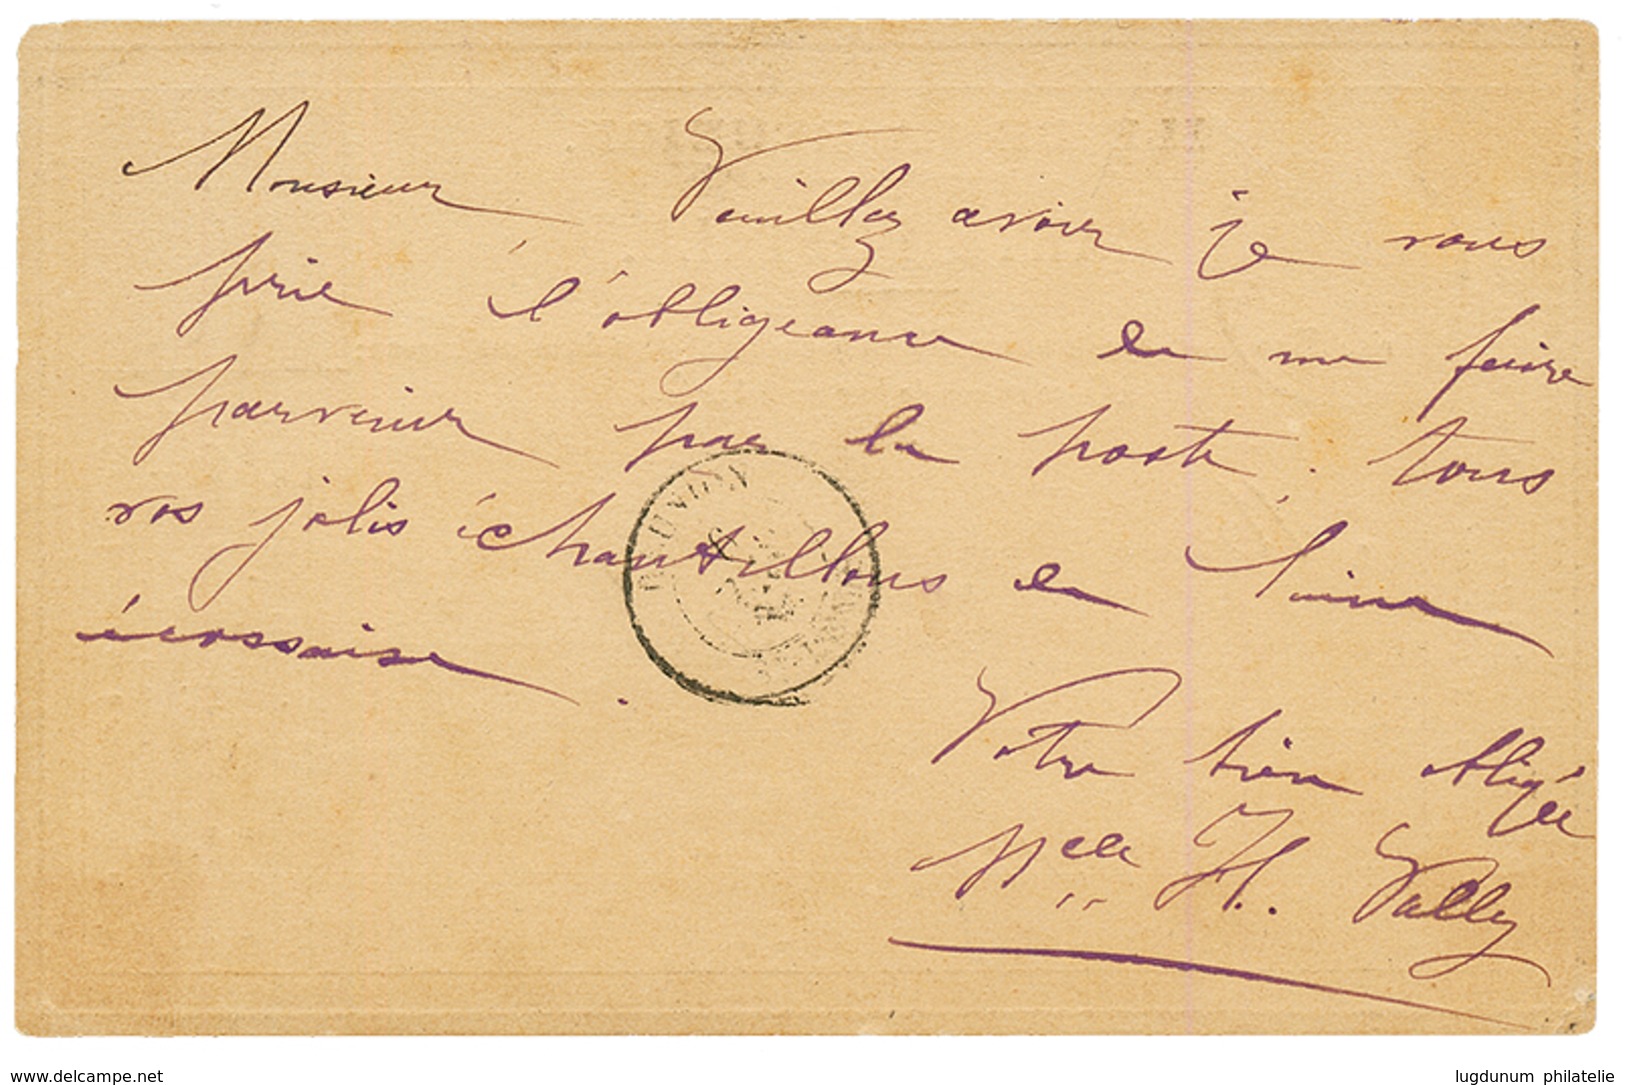 Monsieur Veuillez avoir je vous
prie l'obligeance de me faire
parvenir par la poste, tous
vos jolis échantillons de laine
écossaise.
RÉUNION
Votre bien obligée
Melle H. Valley
www.delcampe.net
lugdunum philatelie